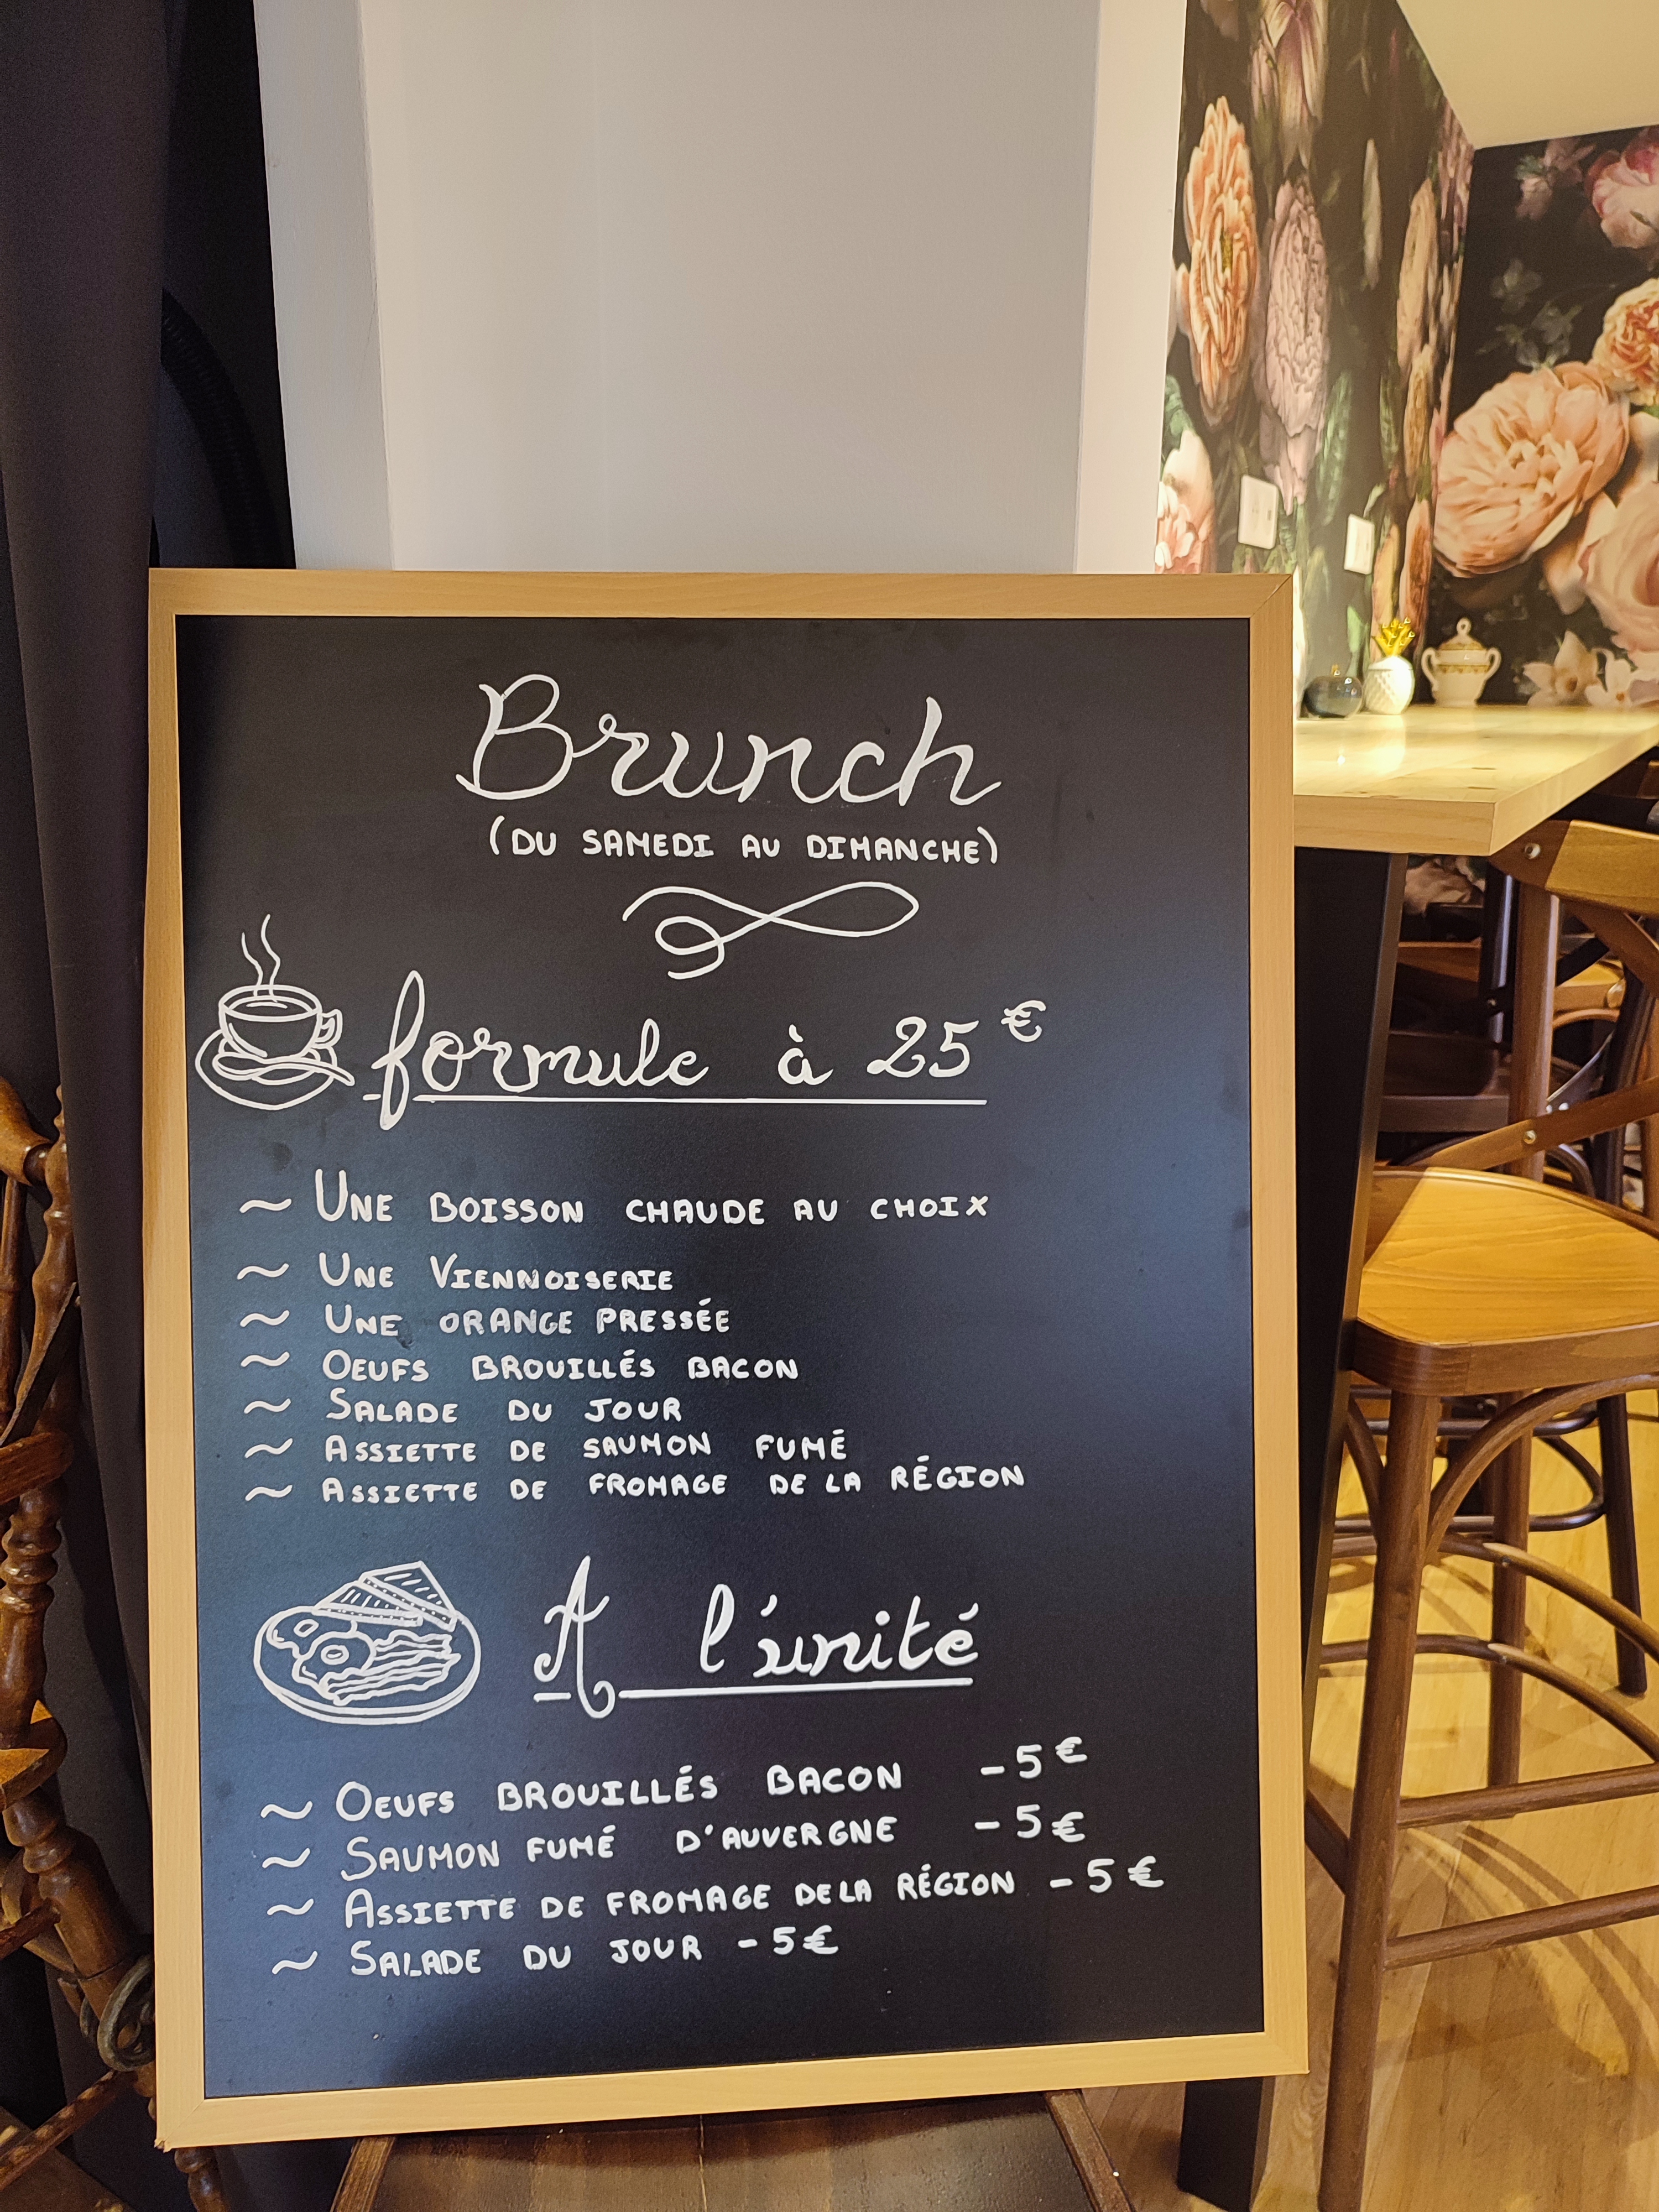 Brunch
(DU SAMEDI AU DIMANCHE)
formule à 25€
~ UNE BOISSON CHAUDE AU CHOIX
~ UNE VIENNOISERIE
~ UNE ORANGE PRESSÉE
~ OEUFS BROUILLÉS BACON
~ SALADE DU JOUR
~ ASSIETTE DE SAUMON FUMÉ
~ ASSIETTE DE FROMAGE DE LA RÉGION
A l'unité
~ OEUFS BROUILLÉS BACON - 5€
~ SAUMON FUMÉ D'AUVERGNE - 5€
~ ASSIETTE DE FROMAGE DE LA RÉGION - 5€
~ SALADE DU JOUR - 5€